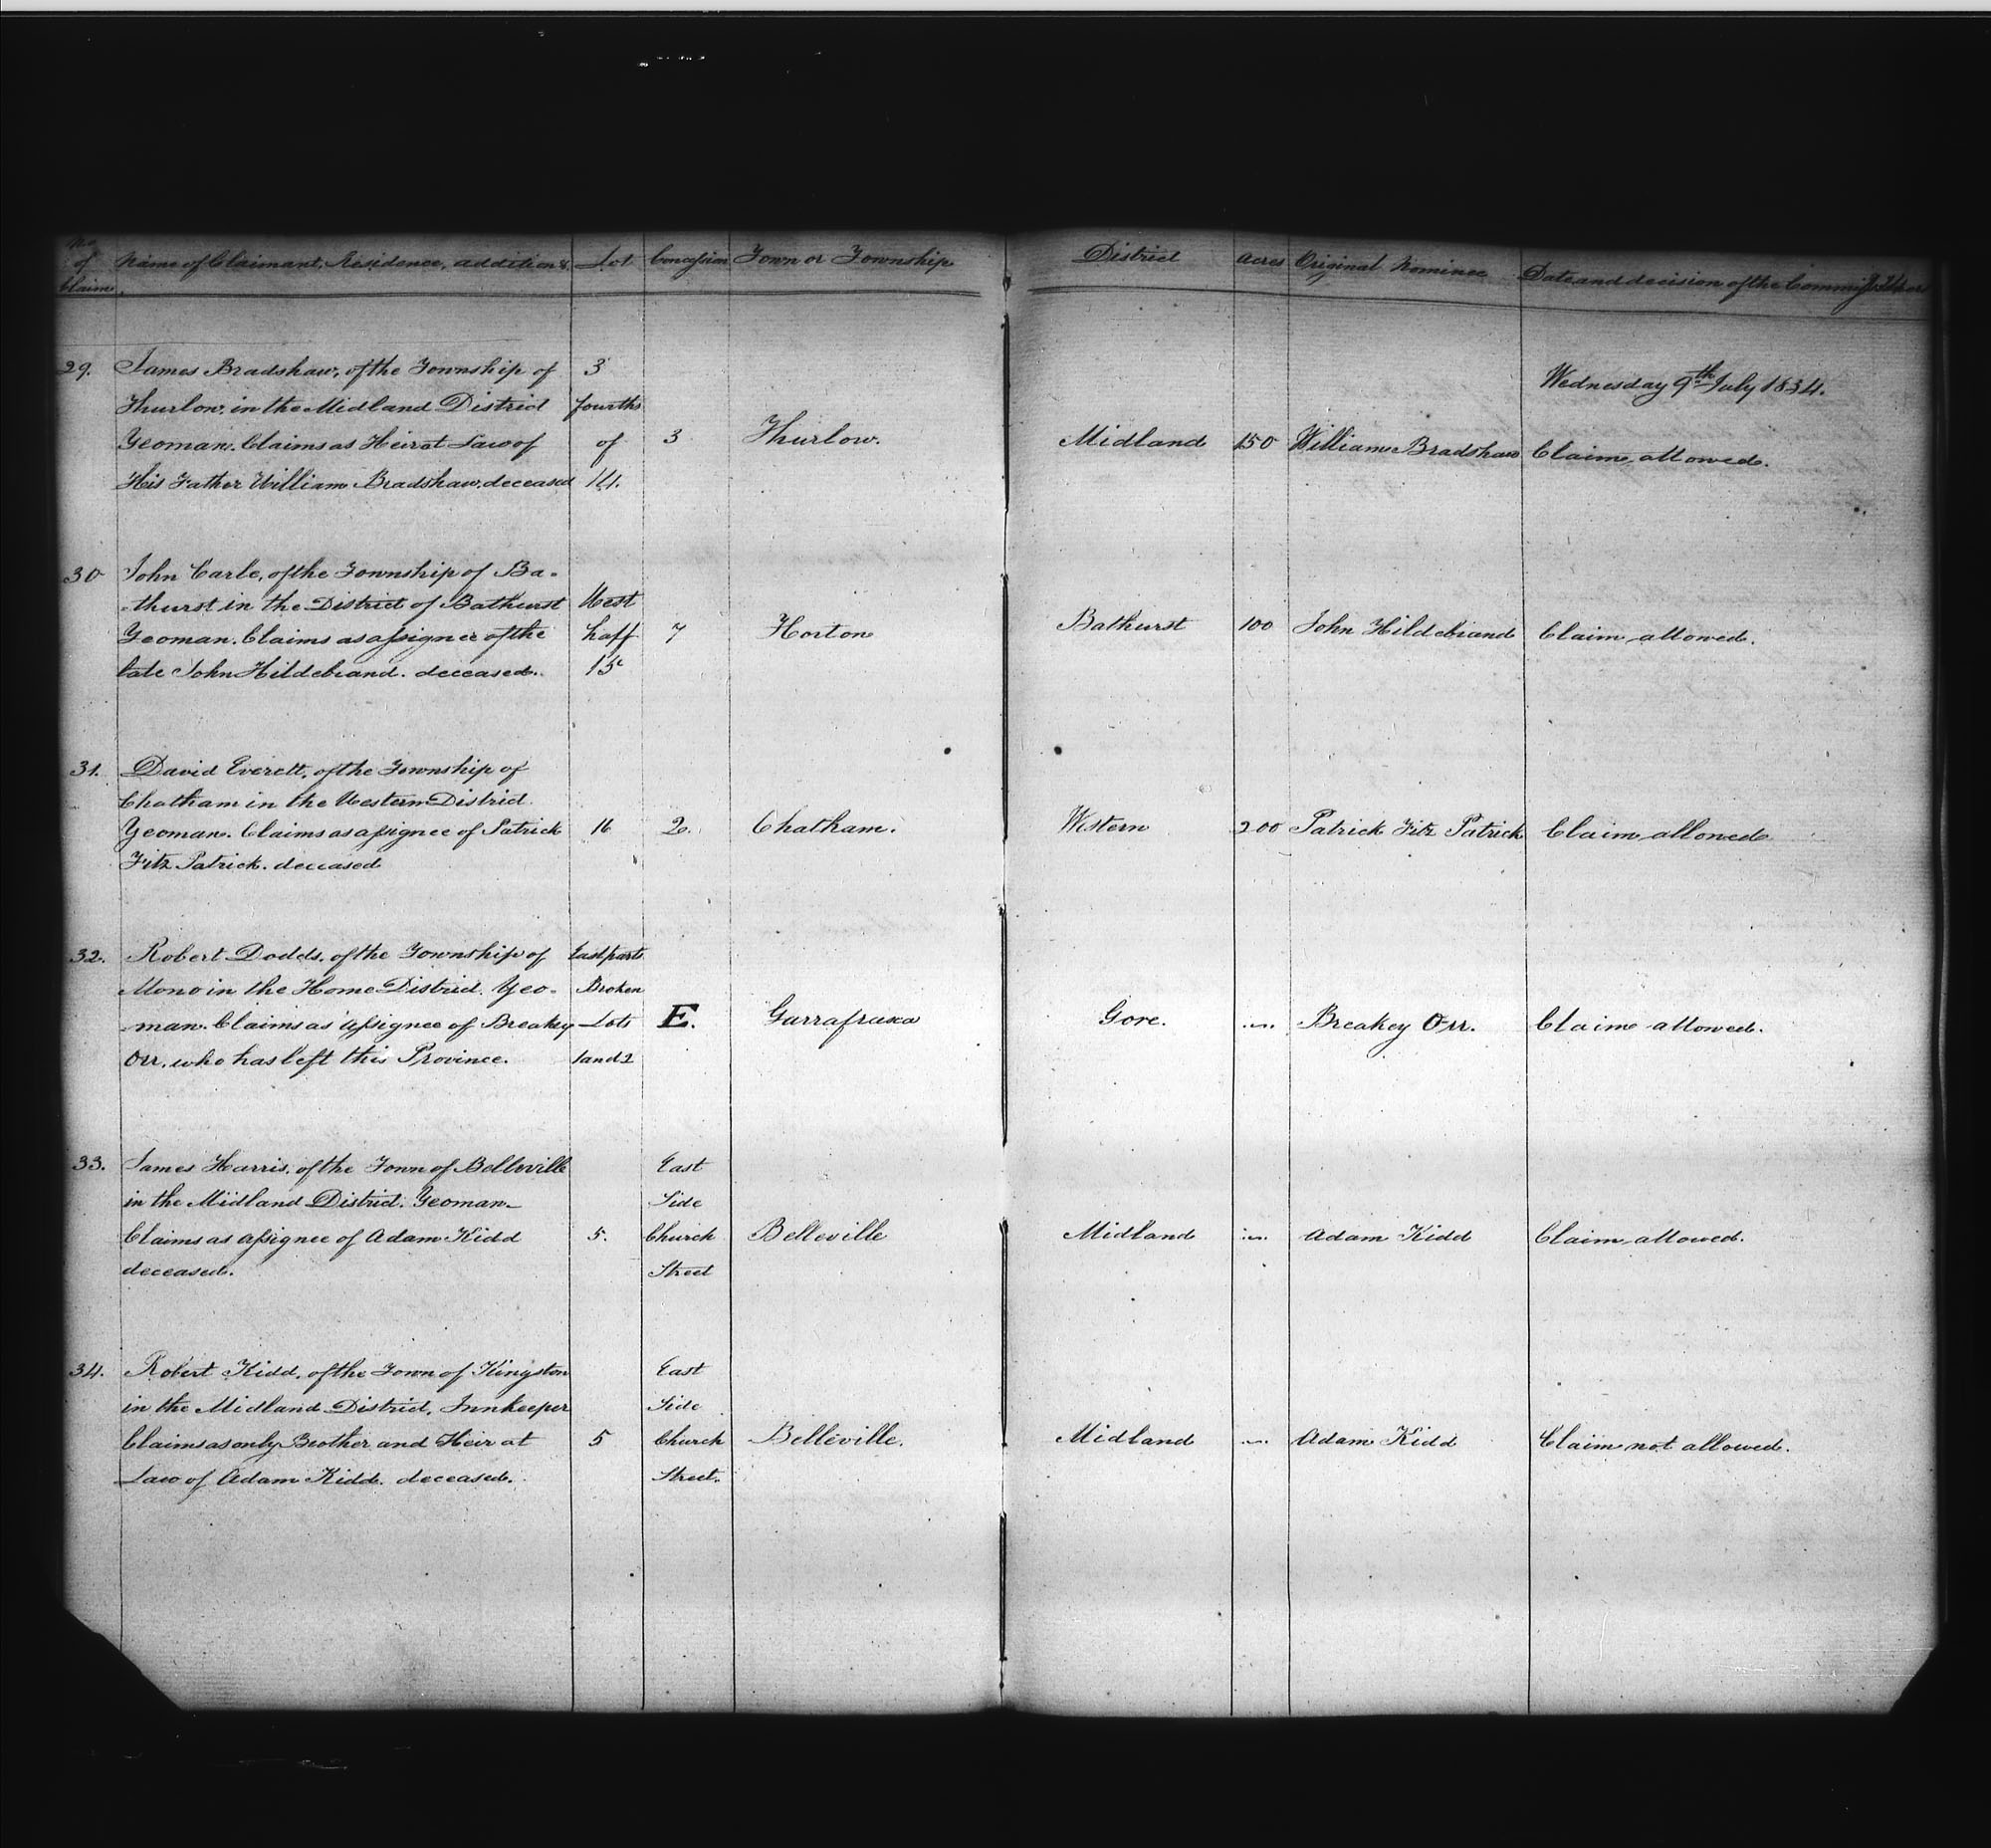 No of Claim
Name of Claimant, Residence, addition &
Lot
Concession
Town or Township
District
Acres
Original Nominee
Date and decision of the Commissioner
Wednesday 9th July 1834.
29.
James Bradshaw, of the Township of
Thurlow, in the Midland District
Yeoman. Claims as Heir at Law of
His Father William Bradshaw, deceased
3
fourths
of
14.
3
Thurlow.
Midland
150
William Bradshaw
Claim allowed.
30
John Carle, of the Township of Ba-
-thurst in the District of Bathurst
Yeoman. Claims as assignee of the
late John Hildebrand. deceased.
West
half
15
7
Horton
Bathurst
100
John Hildebrand
Claim allowed.
31.
David Everett, of the Township of
Chatham in the Western District
Yeoman. Claims as assignee of Patrick
Fitz Patrick. deceased
16
2.
Chatham.
Western
200
Patrick Fitz Patrick
Claim allowed
32.
Robert Dodds, of the Township of
Mono in the Home District. Yeo-
-man. Claims as Assignee of Breakey
Orr. who has left this Province.
East parts
Broken
Lots
1 and 2
E.
Garrafraxa
Gore.
Breakey Orr.
Claim allowed.
33.
James Harris, of the Town of Belleville
in the Midland District. Yeoman
Claims as assignee of Adam Kidd
deceased.
5.
East
Side
Church
Street
Belleville
Midland
Adam Kidd
Claim allowed.
34.
Robert Kidd, of the Town of Kingston
in the Midland District, Innkeeper
Claims as only Brother and Heir at
Law of Adam Kidd. deceased.
5
East
Side
Church
Street.
Belleville.
Midland
Adam Kidd
Claim not allowed.